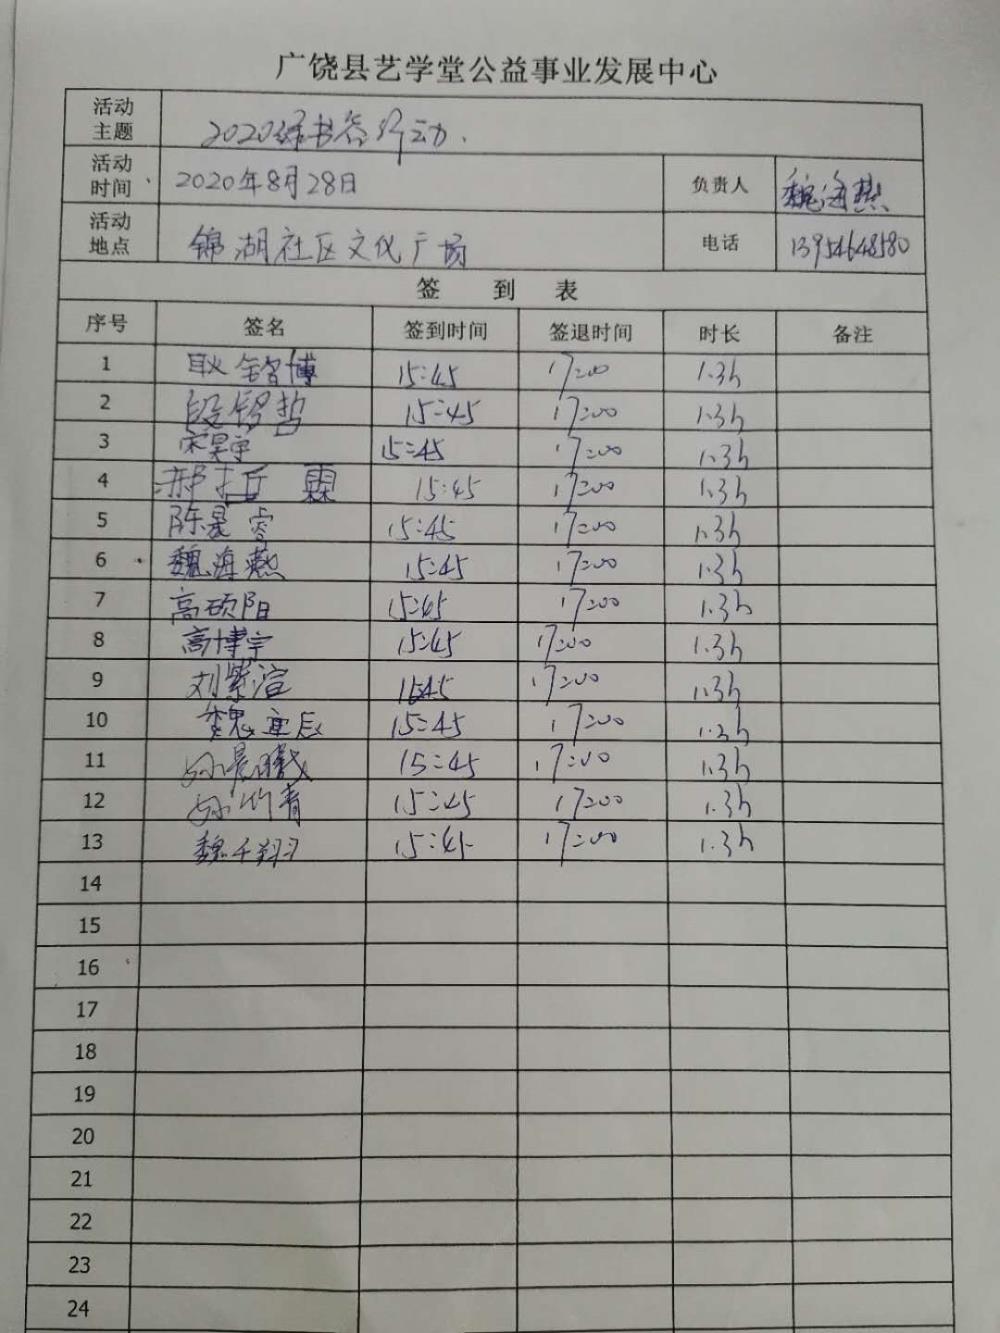 广饶县艺学堂公益事业发展中心
活动主题 2020绿书签行动.
活动时间 2020年8月28日 负责人 魏海燕
活动地点 锦湖社区文化广场 电话 13954648580
签 到 表
序号 签名 签到时间 签退时间 时长 备注
1 耿铭博 15:45 17:00 1.3h
2 段锣哲 15:45 17:00 1.3h
3 宋昊宇 15:45 17:00 1.3h
4 15:45 17:00 1.3h
5 陈晟睿 15:45 17:00 1.3h
6 魏海燕 15:45 17:00 1.3h
7 高硕阳 15:45 17:00 1.3h
8 高博宇 15:45 17:00 1.3h
9 刘紫渲 1545 17:00 1.3h
10 15:45 17:00 1.3h
11 15:45 17:00 1.3h
12 孙竹青 15:45 17:00 1.3h
13 魏千翔 15:45 17:00 1.3h
14
15
16
17
18
19
20
21
22
23
24